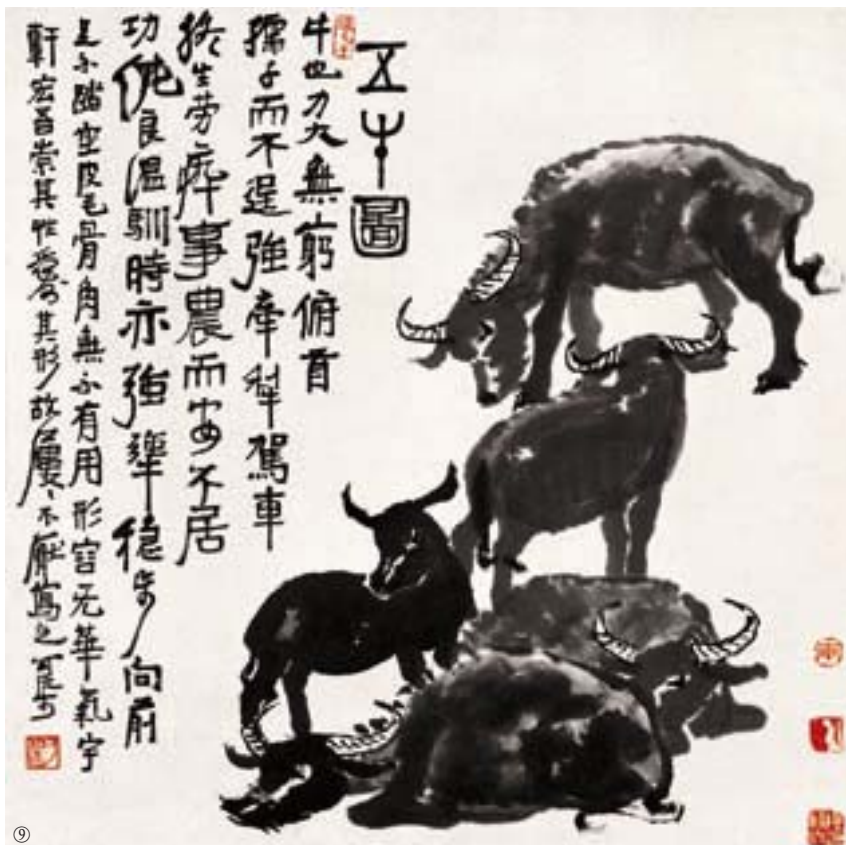 五牛圖
牛也力大無窮俯首
孺子而不逞強牽犁駕車
終生劳瘁事農而安不居
功純良温馴時亦強犟穩步向前
足不踏空皮毛骨角無不有用形容无華氣宇
軒宏吾崇其性愛其形故屢、不厭寫之可染
⑨